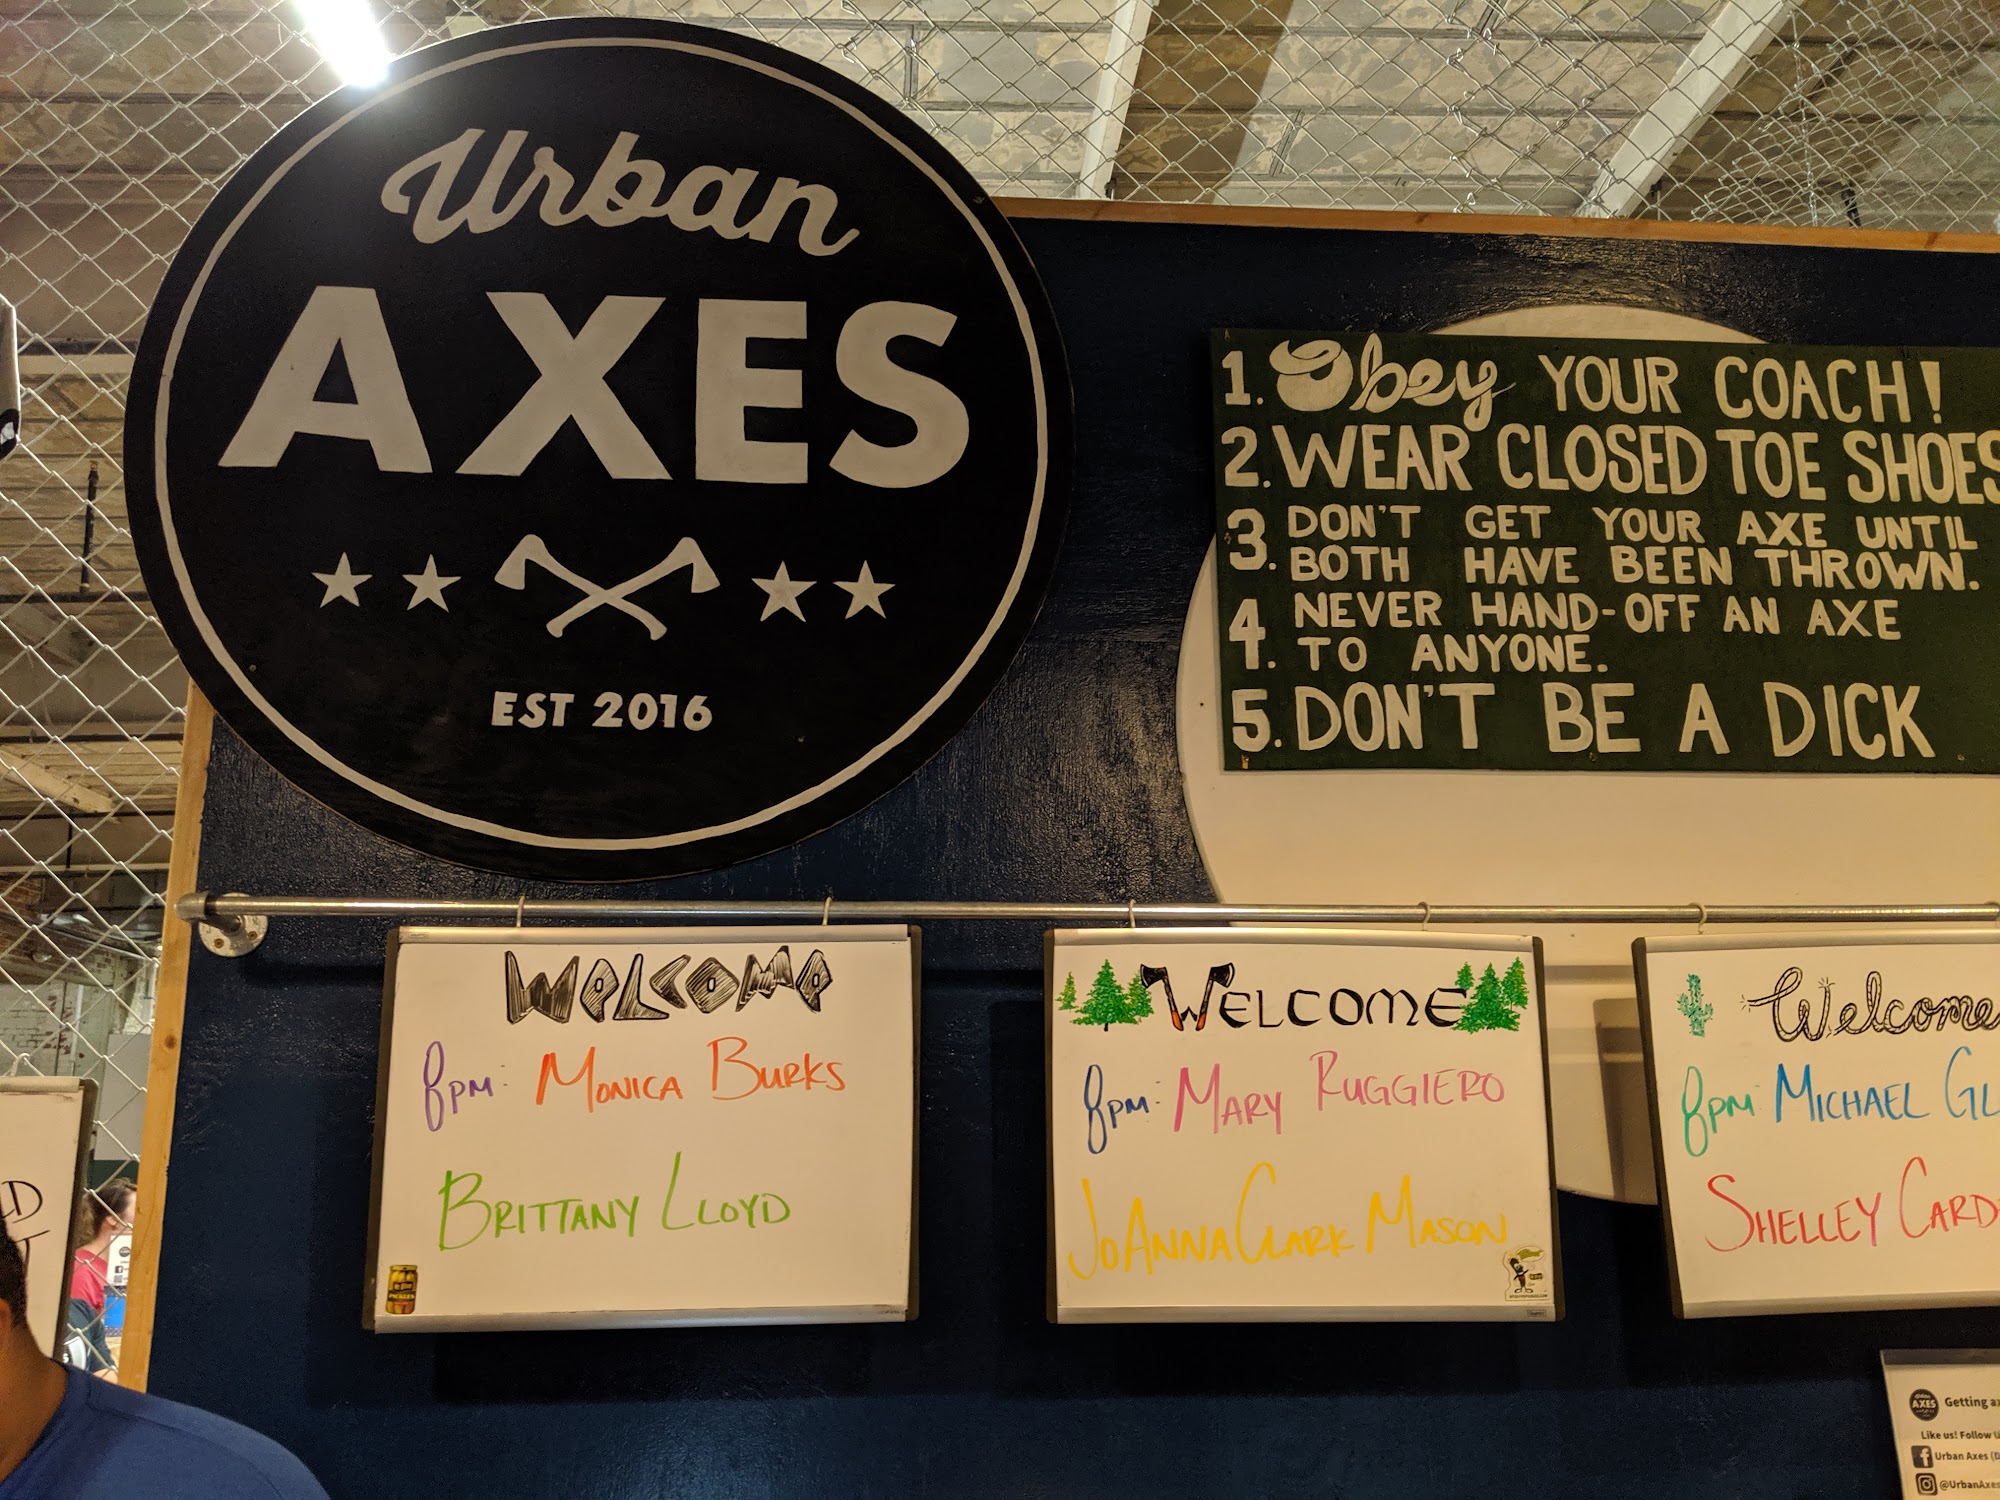 Urban
AXES
EST 2016
1. Obey YOUR COACH!
2. WEAR CLOSED TOE SHOES
3. DON'T GET YOUR AXE UNTIL
BOTH HAVE BEEN THROWN.
4. NEVER HAND-OFF AN AXE
TO ANYONE.
5. DON'T BE A DICK
WELCOME
8PM: MONICA BURKS
BRITTANY LLOYD
PICKLES
WELCOME
8PM: MARY RUGGIERO
JOANNA CLARK MASON
Welcome
8PM: MICHAEL GL
SHELLEY CARD
Urban
AXES
Getting
Like us! Follow
Urban Axes
@UrbanAxes